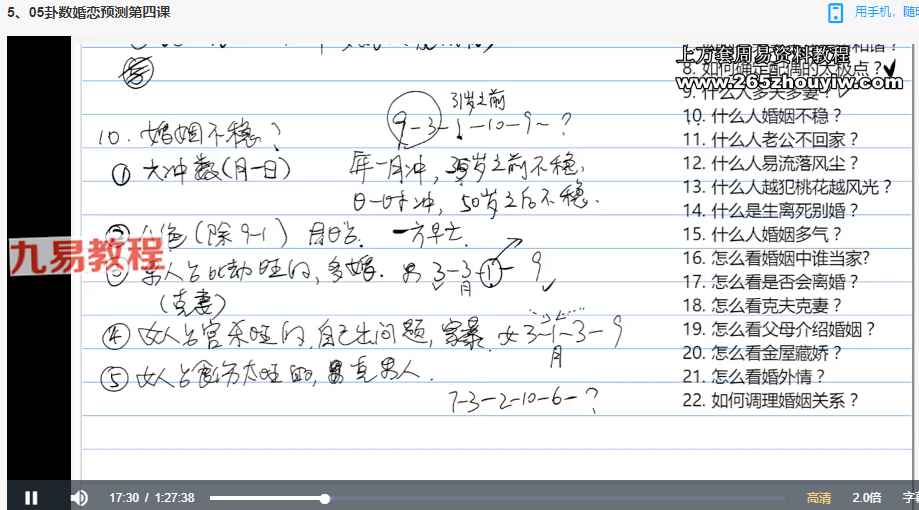 5、05卦数婚恋预测第四课
用手机，随时
上万套周易资料教程
8. 如何确定配偶的太极点？
www.265zhouyiw.com
9. 什么人多夫多妻？
10. 什么人婚姻不稳？
11. 什么人老公不回家？
12. 什么人易流落风尘？
13. 什么人越犯桃花越风光？
14. 什么是生离死别婚？
15. 什么人婚姻多气？
16. 怎么看婚姻中谁当家?
17. 怎么看是否会离婚？
18. 怎么看克夫克妻？
19. 怎么看父母介绍婚姻？
20. 怎么看金屋藏娇？
21. 怎么看婚外情？
22. 如何调理婚姻关系？
31岁之前
9-3-1-10-9- ?
10. 婚姻不稳？
① 六冲数(月-日) 年-月冲，35岁之前不稳.
日-时冲，50岁之后不稳.
② (除9-1) 一方早亡.
九易教程
③ 男人占比劫旺的，多婚. 男 3-3-1-9
月
(克妻)
④ 女人占官杀旺的,自己出问题，家暴. 女 3-1-3-9
月
⑤ 女人占食伤太旺的, 克男人.
7-3-2-10-6-？
17:30 / 1:27:38
高清 2.0倍 字幕